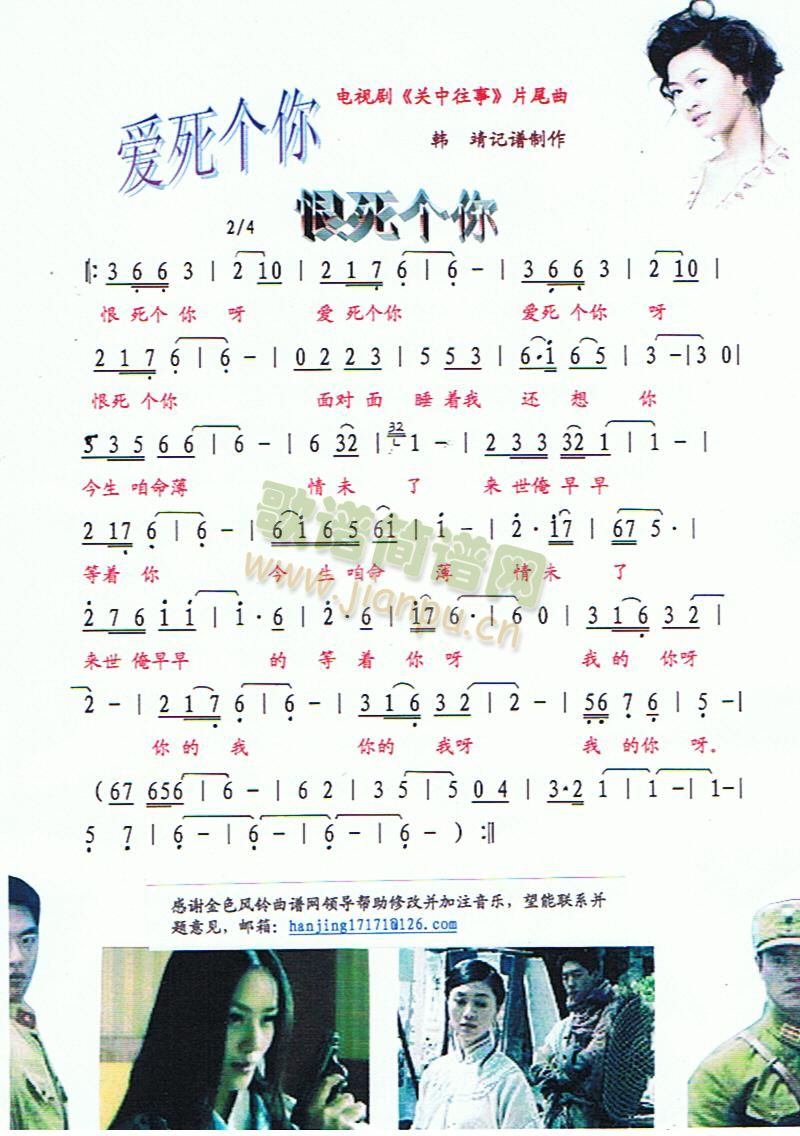 爱死个你
电视剧《关中往事》片尾曲
韩 靖记谱制作
恨死个你
2/4
‖: 3 6 6 3 | 2 1 0 | 2 1 7 6 | 6 - | 3 6 6 3 | 2 1 0 |
恨 死个 你 呀 爱 死个你 爱死 个你 呀
2 1 7 6 | 6 - | 0 2 2 3 | 5 5 3 | 6·i 6 5 | 3 - | 3 0 |
恨死 个你 面对 面 睡 着我 还 想 你
5 3 5 6 6 | 6 - | 6 3 2 | 3 2 1 - | 2 3 3 3 2 1 | 1 - |
今生 咱命薄 情未 了 来 世俺 早早
2 1 7 6 | 6 - | 6 i 6 5 6 i | i - | 2· i 7 | 6 7 5· |
等着 你 今 生 咱命 薄 情未 了
2 7 6 i i | i· 6 | 2· 6 | i 7 6· | 6 0 | 3 1 6 3 2 |
来世 俺早早 的 等 着 你 呀 我 的 你呀
2 - | 2 1 7 6 | 6 - | 3 1 6 3 2 | 2 - | 5 6 7 6 | 5 - |
你 的 我 你的 我呀 我 的你 呀。
( 6 7 6 5 6 | 6 - | 6 2 | 3 5 | 5 0 4 | 3·2 1 | 1 - | 1 - |
5 7 | 6 - | 6 - | 6 - | 6 - ) :‖
歌谱简谱网
www.jianpu.cn
感谢金色风铃曲谱网领导帮助修改并加注音乐，望能联系并
题意见，邮箱：hanjing17171@126.com